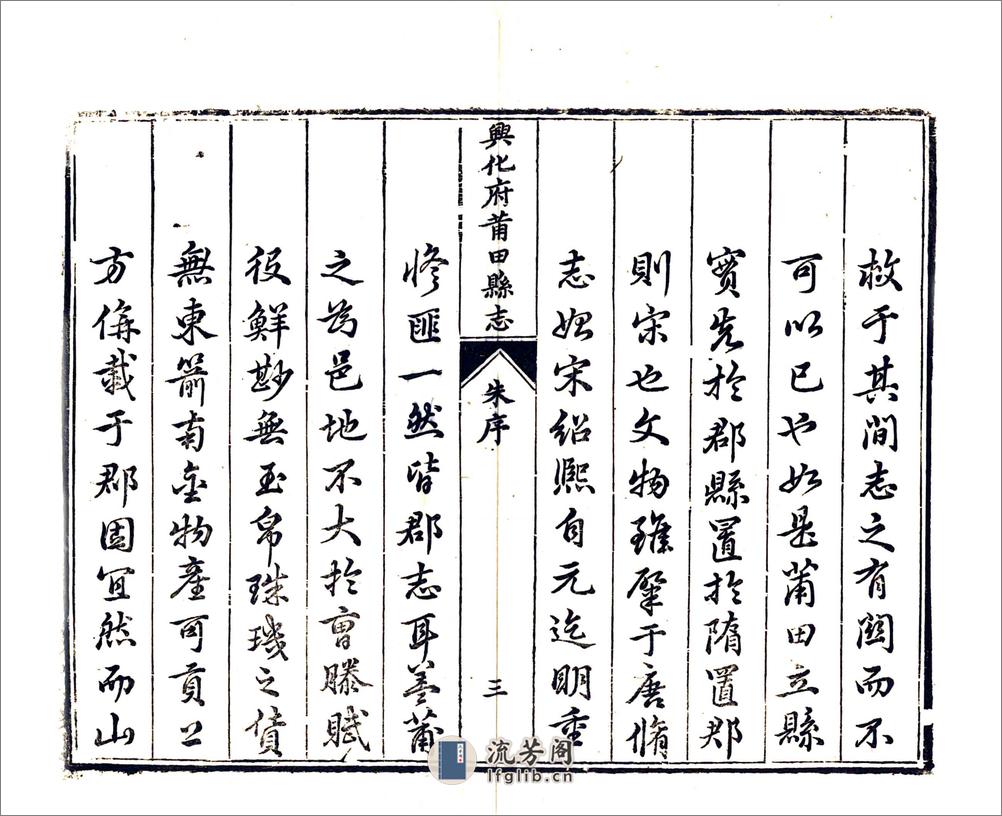 故于其間志之有關而不
可以已也如是莆田立縣
實先於郡縣置於隋置郡
則宋也文物雖肇于唐脩
志始宋紹熙自元迄明重
興化府莆田縣志
朱序
三
修匪一然皆郡志耳葢莆
之為邑地不大於曹滕賦
役鮮尠無玉帛珠璣之貨
無東箭南金物產可貢上
方俻載于郡固宜然而山
流芳阁
lfglib.cn